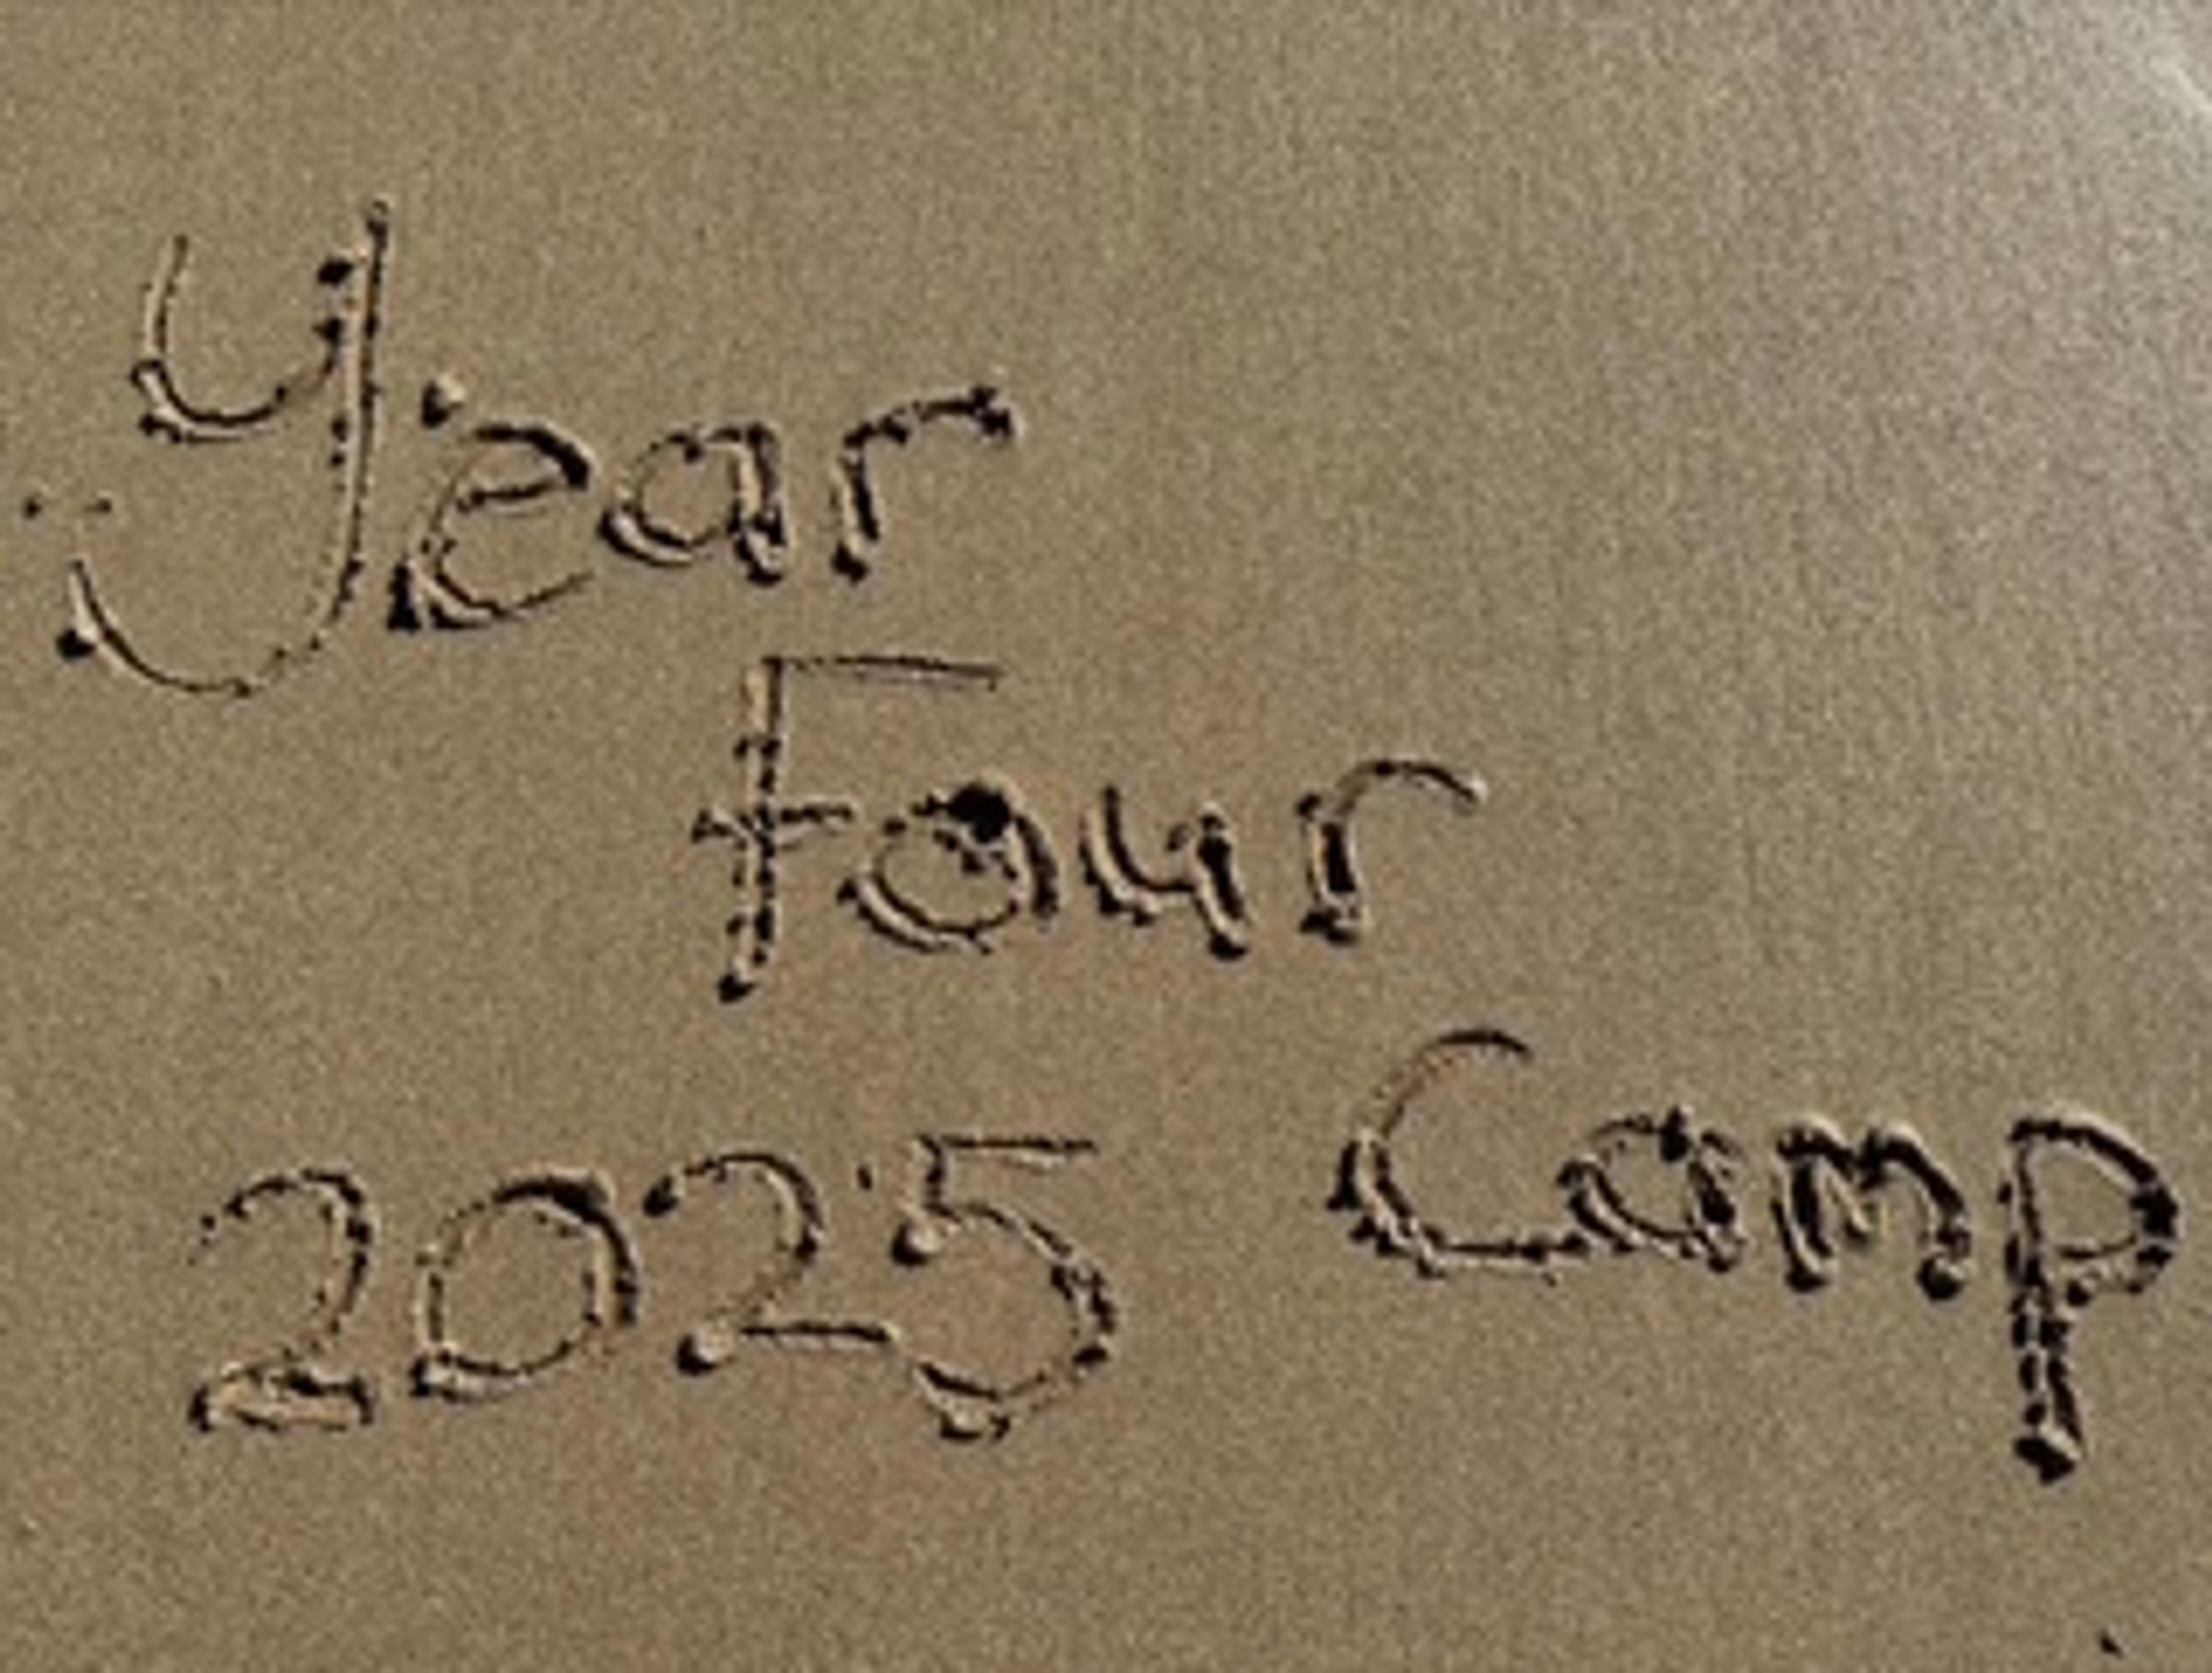 Year
Four
Camp
2025